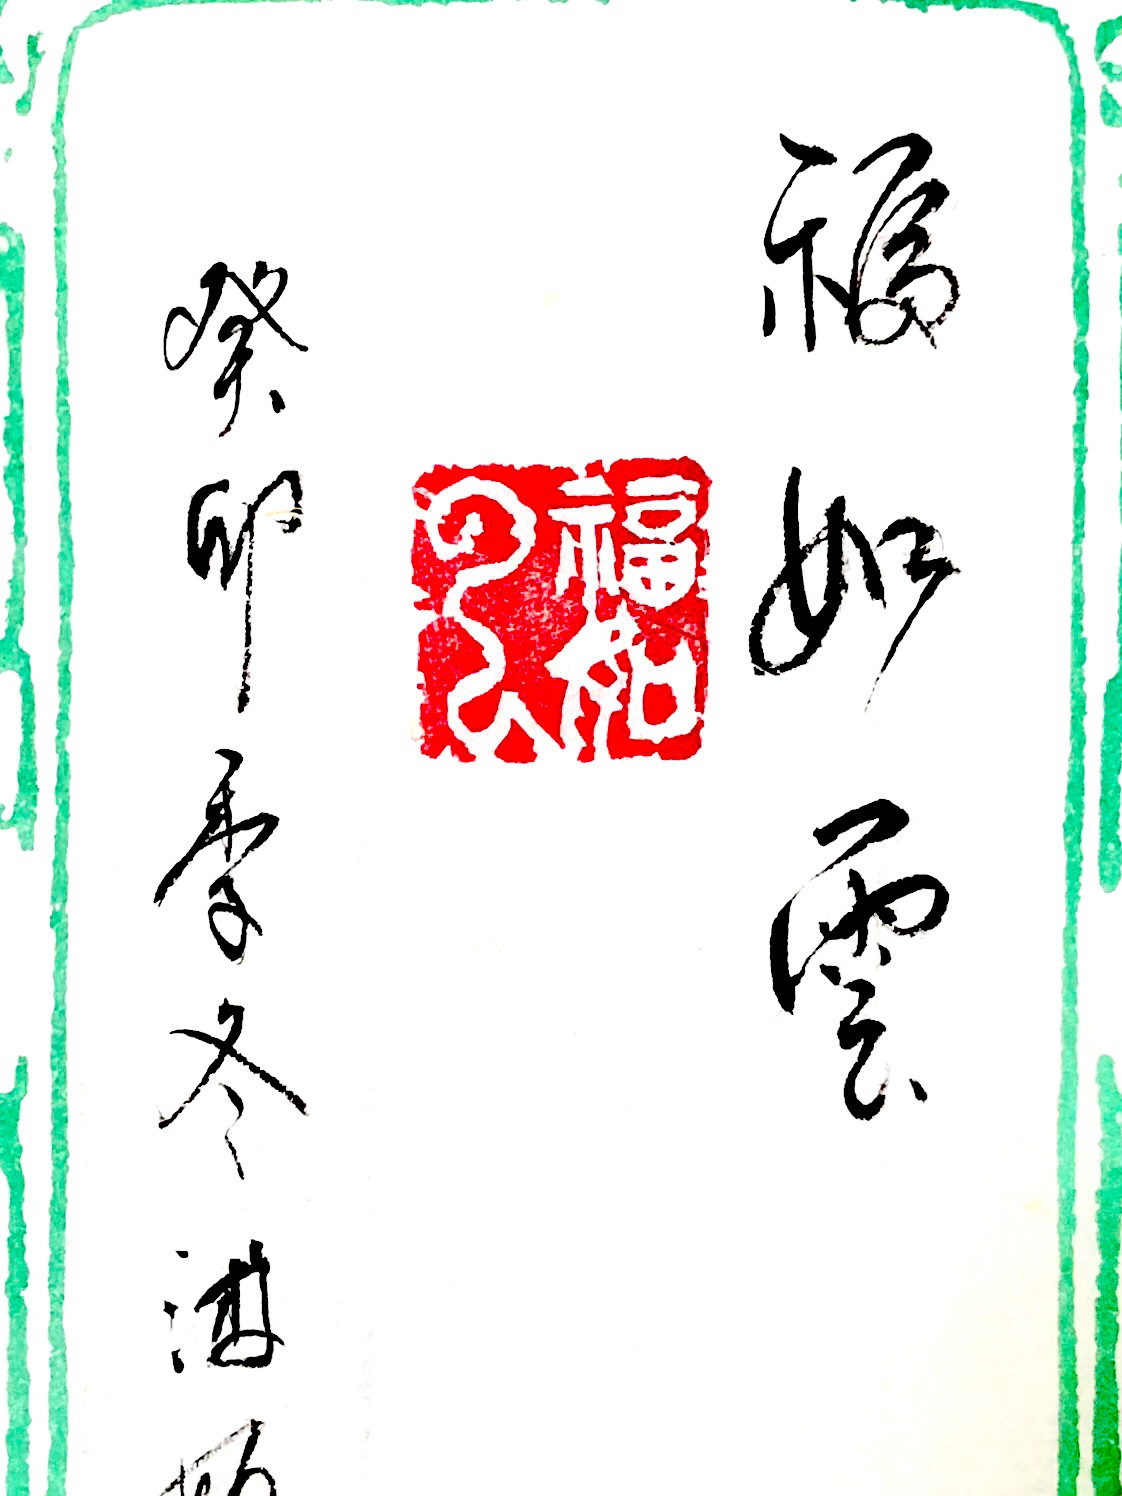 福如雲
福如云
癸卯季冬湛